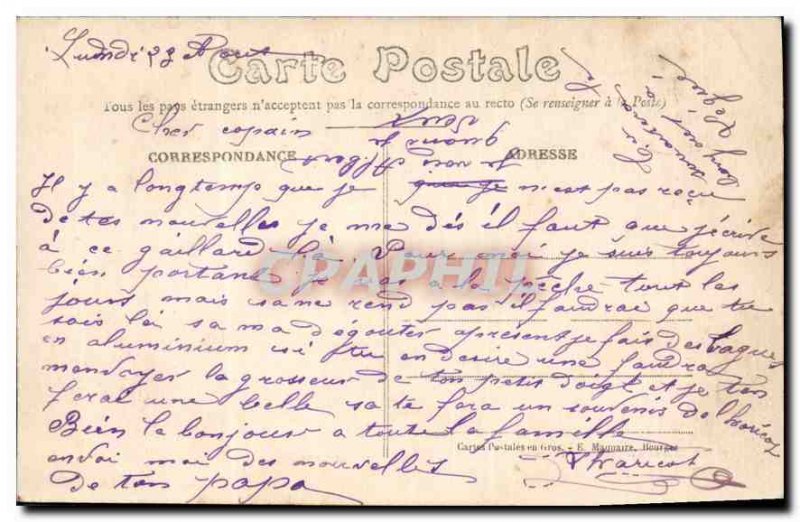 Lundi 23 Aout
Carte Postale
Tous les pays étrangers n'acceptent pas la correspondance au recto (Se renseigner à la Poste)
Cher copain
CORRESPONDANCE ADRESSE
Il y a longtemps que je n'est pas reçu
de tes nouvelles je me dés il faut que j'écrive
à ce gaillard là Pour moi je suis toujours
bien portant je vais a la peche tout les
jours mais sa ne rend pas il faudrai que tu
sois là sa ma degouter apresent je fais des bagues
en aluminium si tu en desire une faudra
menvoyer la grosseur de ton petit doigt et je ton
ferai une belle sa te fera un souvenir de l'haricot
Bien le bonjour a toute la famille
Cartes Postales en Gros. - E. Maquaire, Bourges
envoi moi des nouvelles
L'haricot
de ton papa
CPAPHIL